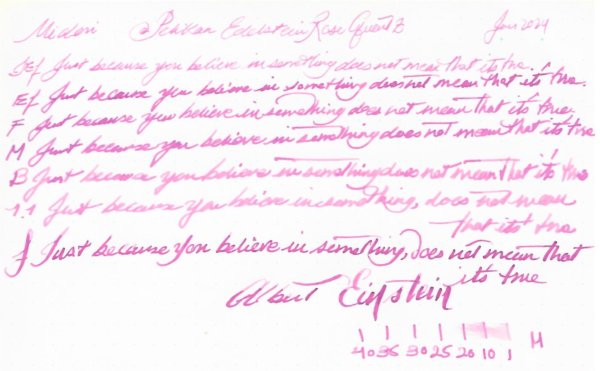 Midori Pelikan Edelstein Rose Quartz Jan 2024
Def Just because you believe in something does not mean that it's true.
Ef Just because you believe in something does not mean that it's true.
F Just because you believe in something does not mean that it's true.
M Just because you believe in something does not mean that it's true
B Just because you believe in something does not mean that it's true
1.1 Just because you believe in something, does not mean
that it's true
f Just because you believe in something, does not mean that
it's true
Albert Einstein
40 35 30 25 20 10 1 M